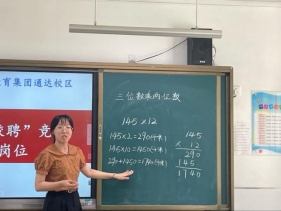 育集团通达校区
聘”竞
岗位
三位数乘两位数
145×12
145×2=290(千米)
145×10=1450(千米)
290+1450=1740(千米)
145
× 12
290
145
1740